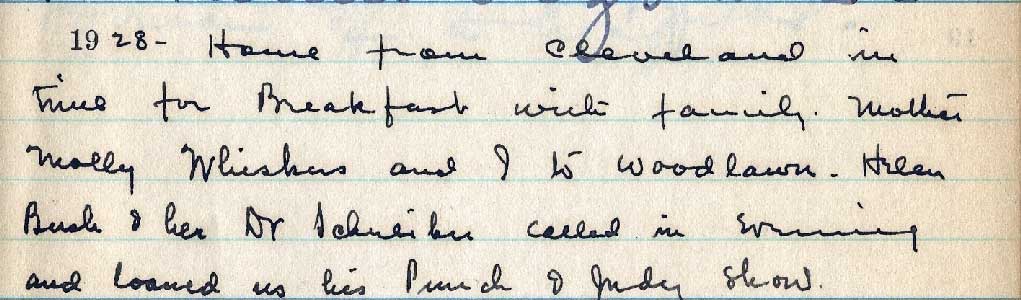 1928- Home from Cleveland in
time for Breakfast with family. Mother
Molly Whiskers and I to Woodlawn. Helen
Bush & her Dr Schreiber called in Evening
and loaned us his Punch & Judy Show.